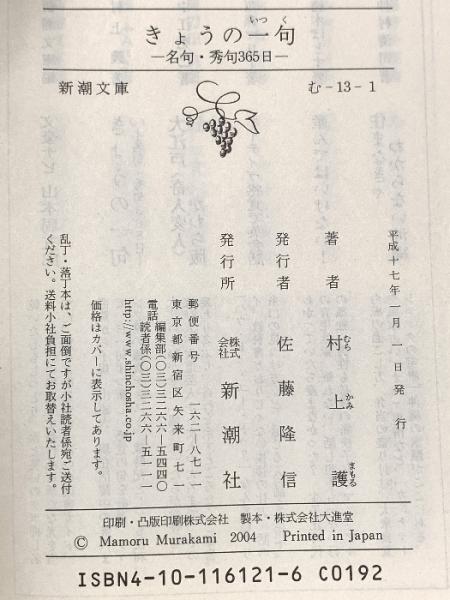 いっく
きょうの一句
―名句・秀句365日―
新潮文庫
む-13-1
平成十七年一月一日発行
著者 村上護
むらかみ まもる
発行者 佐藤隆信
発行所 株式会社 新潮社
郵便番号 一六二―八七一一
東京都新宿区矢来町七一
電話 編集部(〇三)三二六六―五四四〇
読者係(〇三)三二六六―五一一一
http://www.shinchosha.co.jp
価格はカバーに表示してあります。
乱丁・落丁本は、ご面倒ですが小社読者係宛ご送付
ください。送料小社負担にてお取替えいたします。
印刷・凸版印刷株式会社 製本・株式会社大進堂
© Mamoru Murakami 2004 Printed in Japan
ISBN4-10-116121-6 C0192